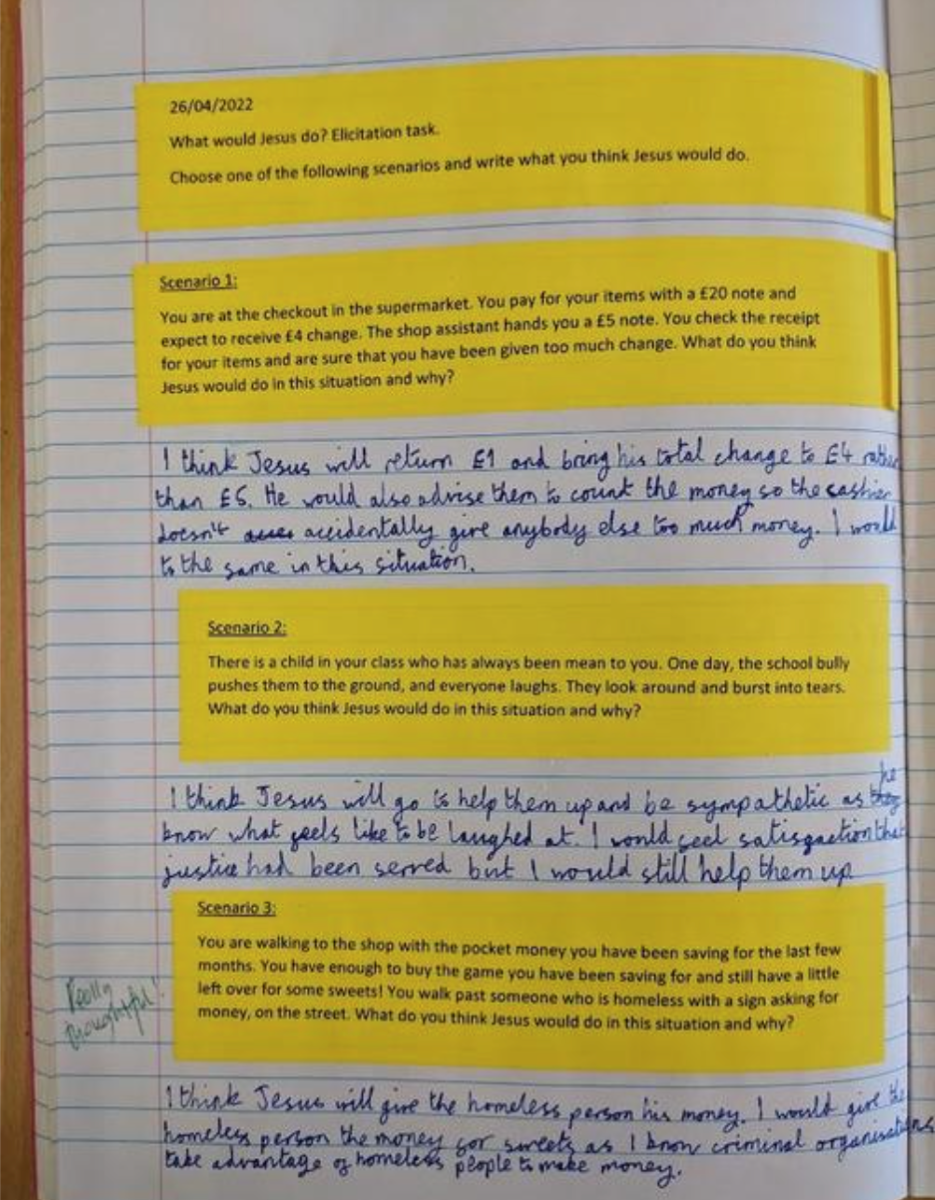 26/04/2022
What would Jesus do? Elicitation task.
Choose one of the following scenarios and write what you think Jesus would do.
Scenario 1:
You are at the checkout in the supermarket. You pay for your items with a £20 note and
expect to receive £4 change. The shop assistant hands you a £5 note. You check the receipt
for your items and are sure that you have been given too much change. What do you think
Jesus would do in this situation and why?
I think Jesus will return £1 and bring his total change to £4 rather
than £5. He would also advise them to count the money so the cashier
doesn't accidentally give anybody else too much money. I would
to the same in this situation.
Scenario 2:
There is a child in your class who has always been mean to you. One day, the school bully
pushes them to the ground, and everyone laughs. They look around and burst into tears.
What do you think Jesus would do in this situation and why?
he
I think Jesus will go to help them up and be sympathetic as they
know what feels like to be laughed at. I would feel satisfaction that
justice had been served but I would still help them up
Scenario 3:
You are walking to the shop with the pocket money you have been saving for the last few
months. You have enough to buy the game you have been saving for and still have a little
left over for some sweets! You walk past someone who is homeless with a sign asking for
money, on the street. What do you think Jesus would do in this situation and why?
Really
thoughtful!
I think Jesus will give the homeless person his money. I would give the
homeless person the money for sweets as I know criminal organisations
take advantage of homeless people to make money.